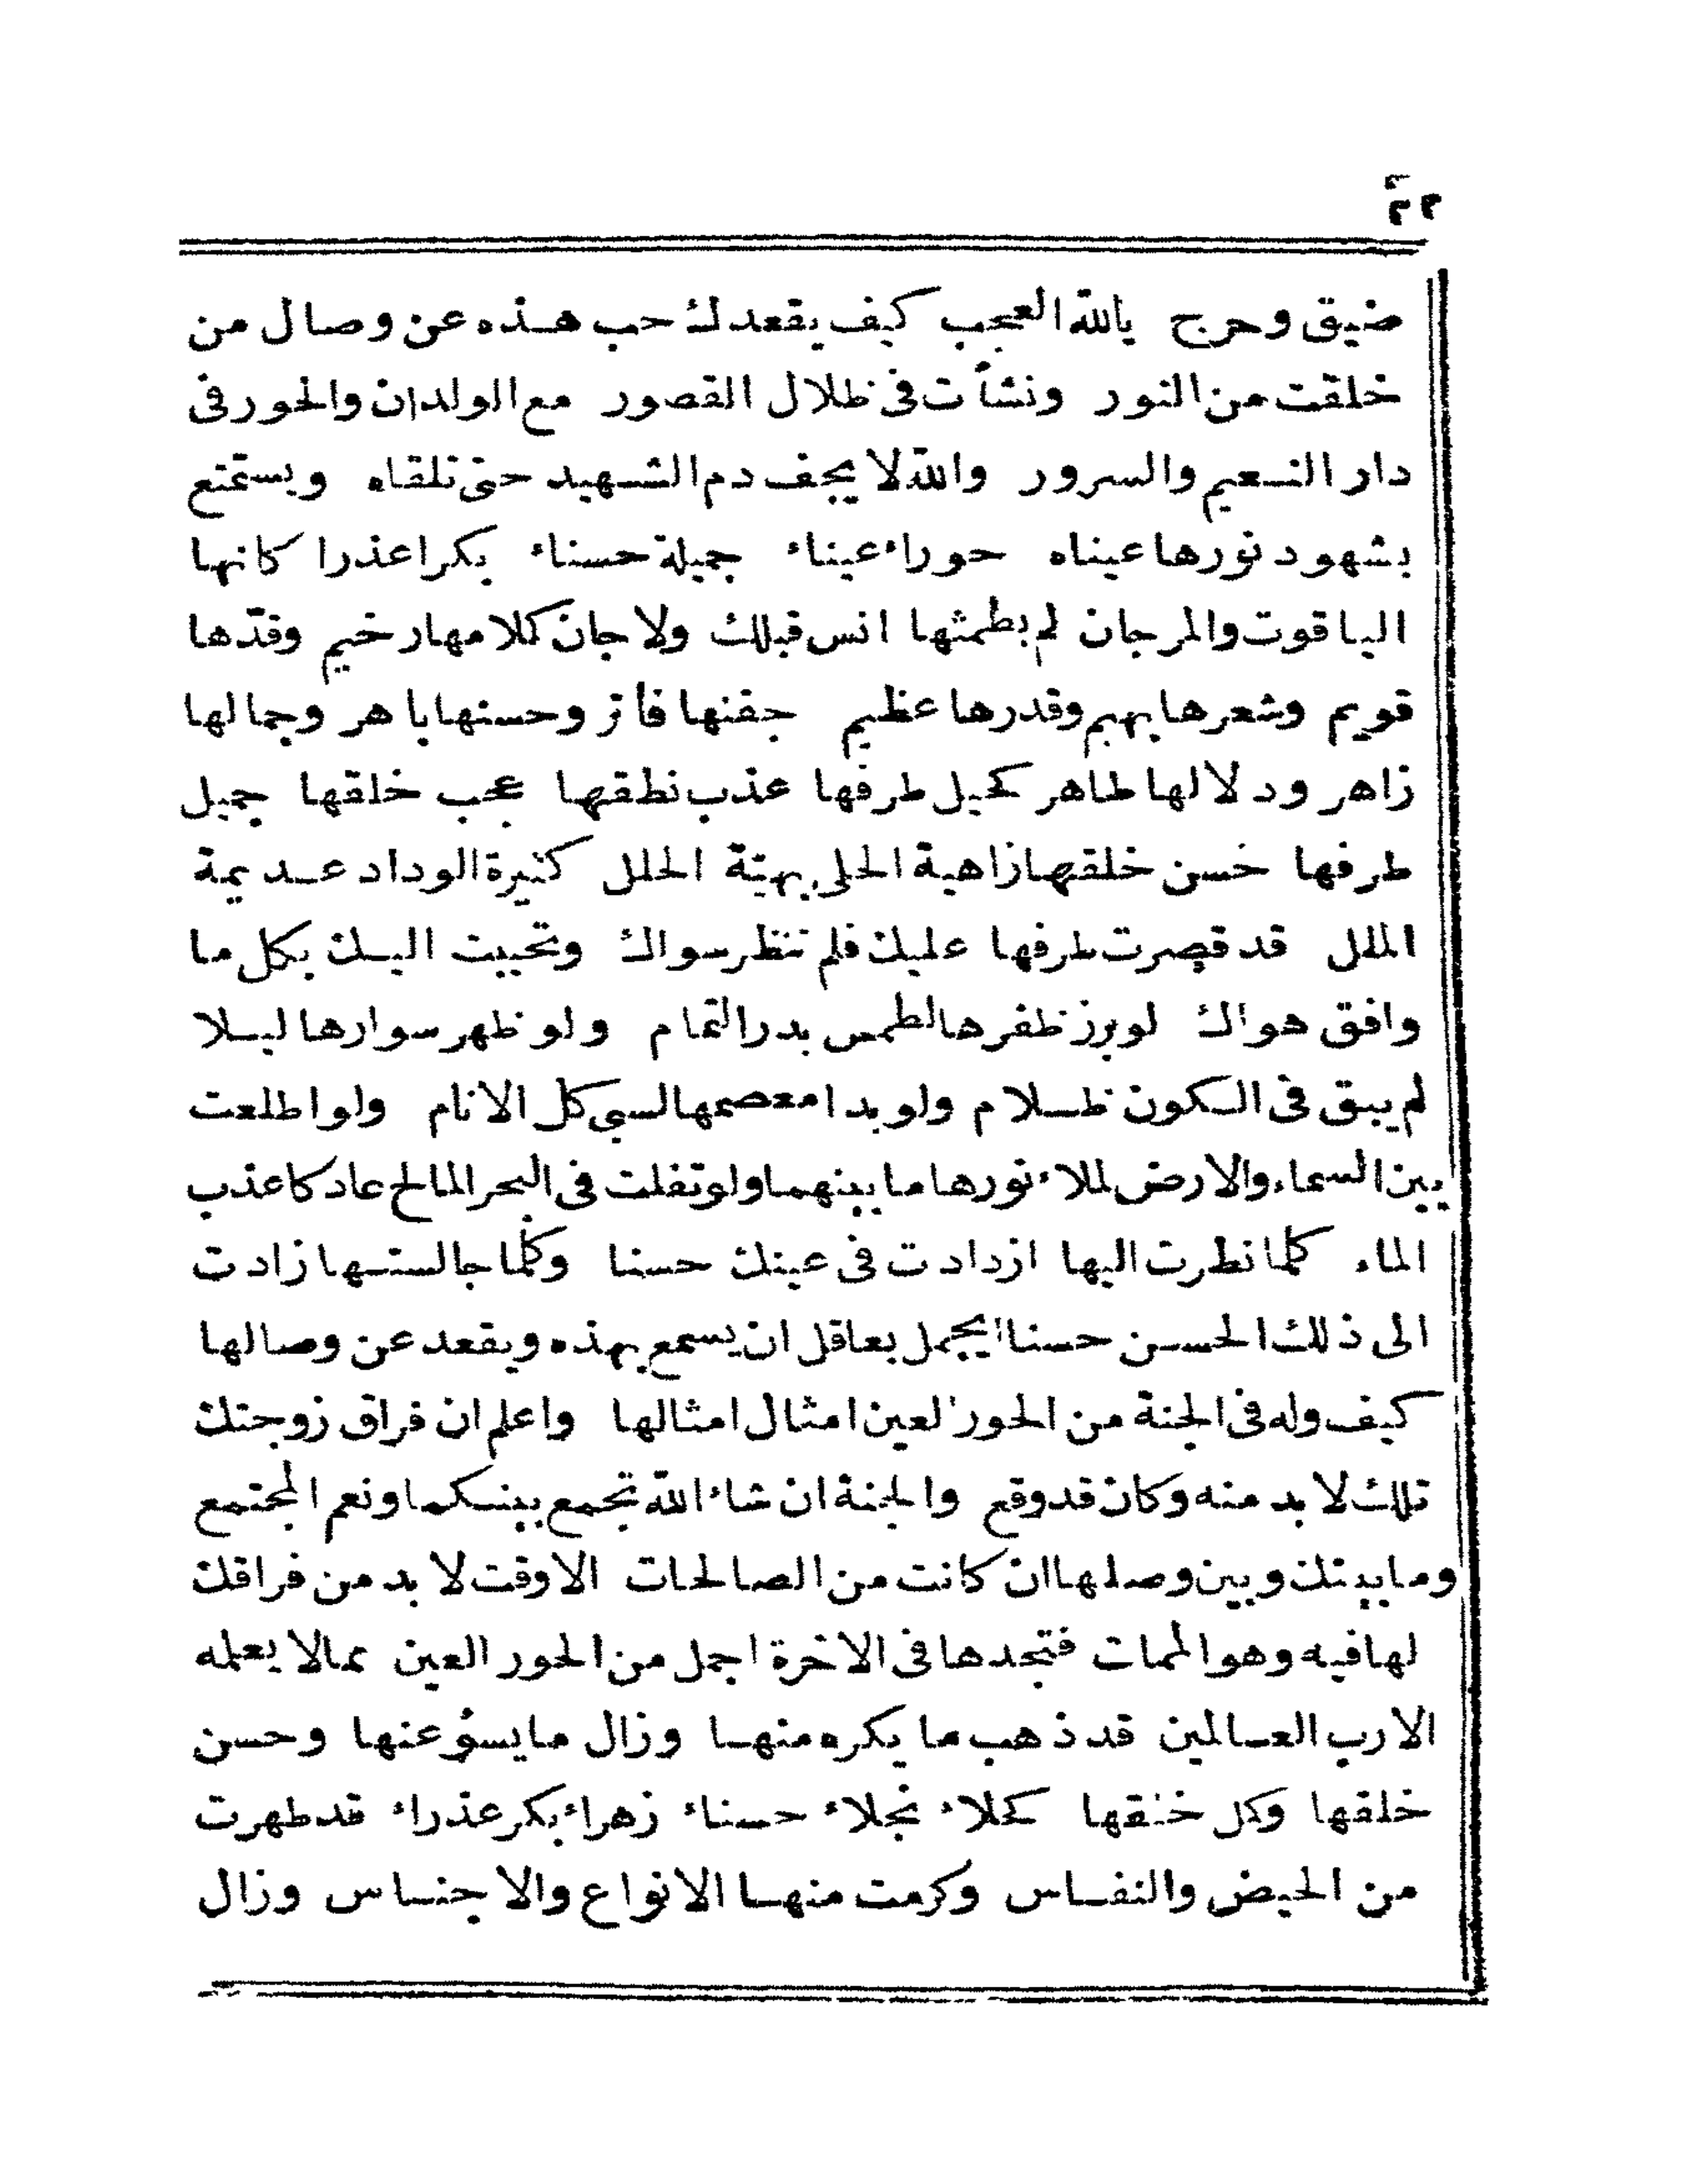 ٢٢
ضيق وحرج يالله العجب كيف يقعدك حب هذه عن وصال من
خلقت من النور ونشأت فى ظلال القصور مع الولدان والحور فى
دار النعيم والسرور والله لا يجف دم الشهيد حتى تلقاه ويستمتع
بشهود نورها عيناه حوراء عيناء جميلة حسناء بكرا عذرا كانها
الياقوت والمرجان لم يطمثها انس قبلك ولا جان كلامها رخيم وقدّها
قويم وشعرها بهيم وقدرها عظيم جفنها فاتر وحسنها باهر وجمالها
زاهر ودلالها طاهر كحيل طرفها عذب نطقها عجب خلقها جميل
طرفها حسن خلقها زاهية الحلى بهيّة الحلل كثيرة الوداد عديمة
الملل قد قصرت طرفها عليك فلم تنظر سواك وتحببت اليك بكل ما
وافق هواك لو برز ظفرها لطمس بدر التمام ولو ظهر سوارها ليلا
لم يبق فى الكون ظلام ولو بدا معصمها لسبى كل الانام ولو اطلعت
بين السماء والارض لملاء نورها ما بينهما ولو تفلت فى البحر المالح عاد كاعذب
الماء كلما نظرت اليها ازدادت فى عينك حسنا وكلما جالستها زادت
الى ذلك الحسن حسنا ايجمل بعاقل ان يسمع بهذه ويقعد عن وصالها
كيف وله فى الجنة من الحور العين امثال امثالها واعلم ان فراق زوجتك
تلك لا بد منه وكان قد وقع والجنة ان شاء الله تجمع بينكما ونعم المجتمع
وما بينك وبين وصلها ان كانت من الصالحات الا وقت لا بد من فراقك
لها فيه وهو الممات فتجدها فى الاخرة اجمل من الحور العين بمالا يعلمه
الا رب العالمين قد ذهب ما يكره منها وزال ما يسؤ عنها وحسن
خلقها وكل خلقها كحلاء نجلاء حسناء زهراء بكر عذراء قد طهرت
من الحيض والنفاس وكرمت منها الانواع والاجناس وزال